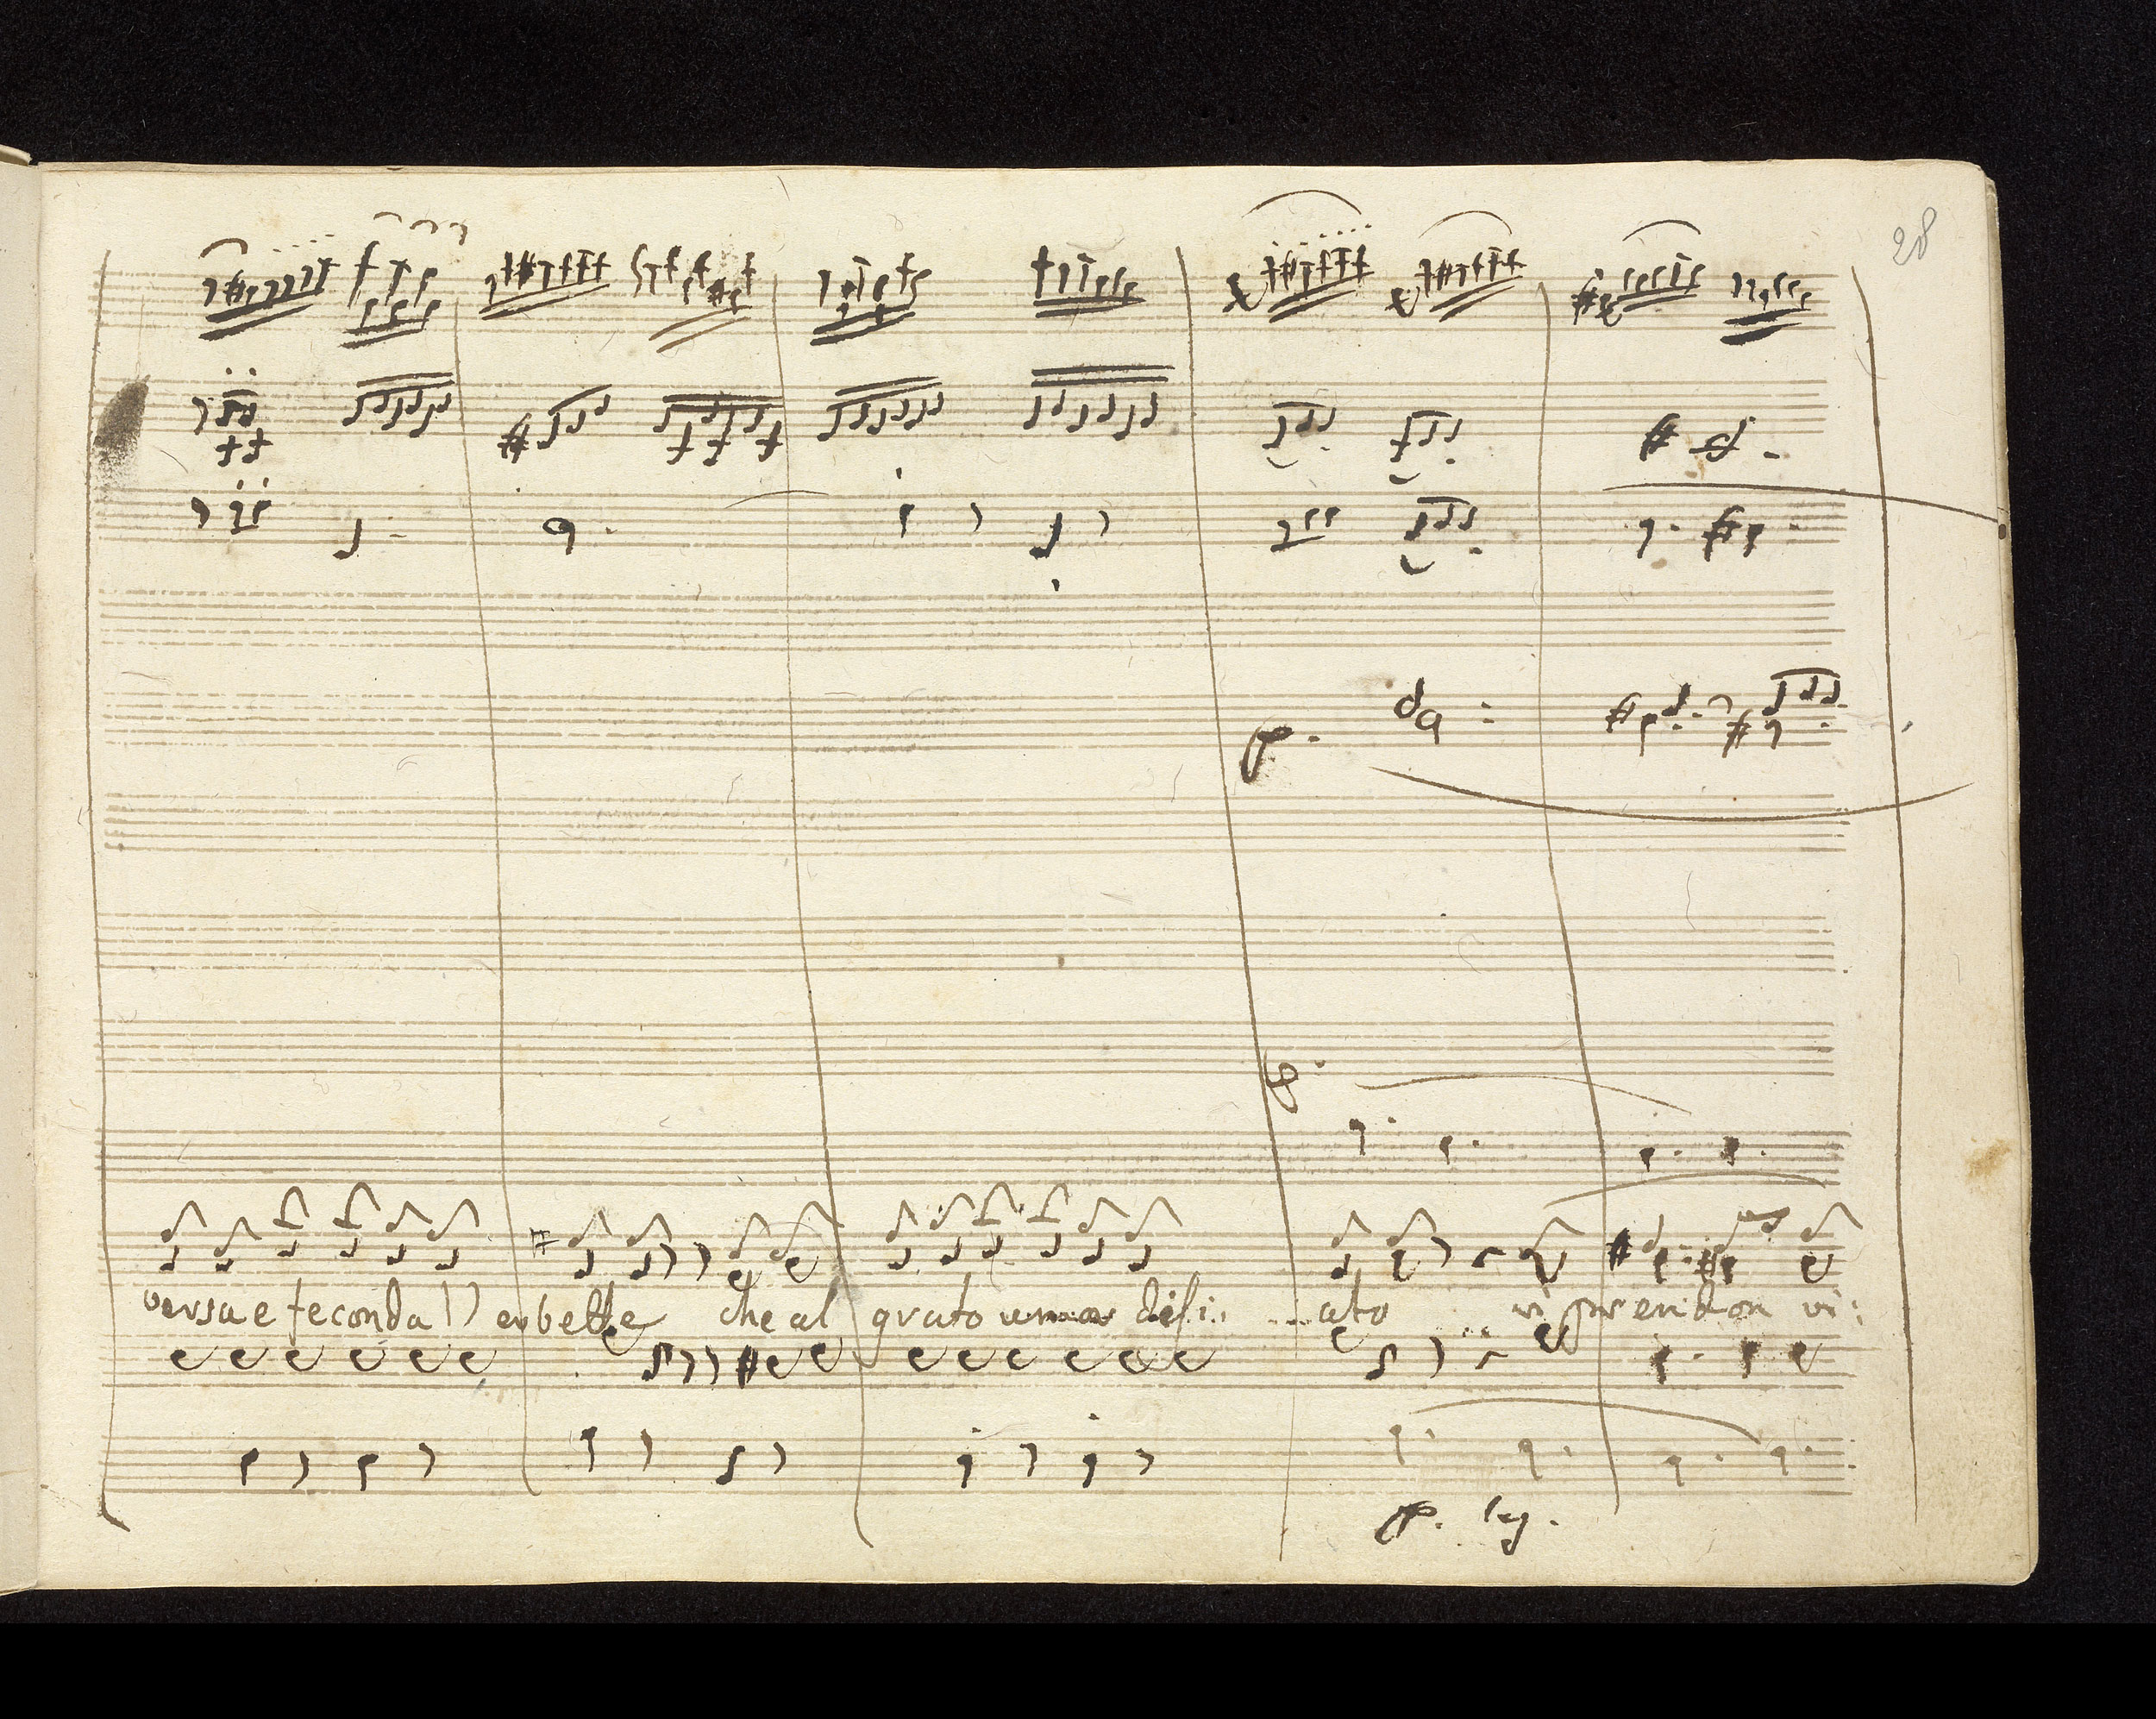 28
versa e feconda l'erbette che al grato umor deli.. ...ato vi prendon vi:
p. leg.